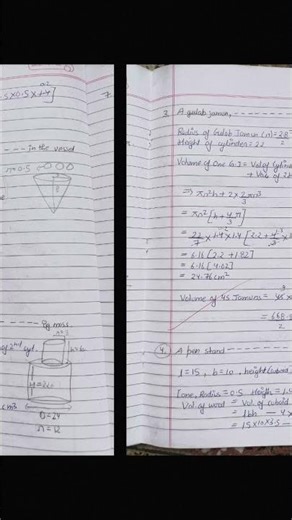 .5×0.5×1.4]
in the vessel
r=0.5
By mass
h=220
D=24
r=12
cm³
7.
3. A gulab jamun,
Radius of Gulab Jamun (r) = 2.8
2
Height of cylinder = 2.2
Volume of One G.J = Vol of Cylinder
+ Vol of 2
⇒ πr²h + 2 × 2 πr³
3
= πr² [h + 4 r]
3
= 22 × 1.4 × 1.4 [2.2 + 4
7
= 6.16 [2.2 + 1.82]
= 6.16 [4.02]
= 24.76 cm²
Volume of 45 Jamuns = 45 ×
2
4. A pen stand
l = 15, b = 10, height (cuboid)
[one, Radius = 0.5 Heigth = 1.
Vol of wood = Vol. of cuboid
= lbh - 4
= 15×10×3.5 -